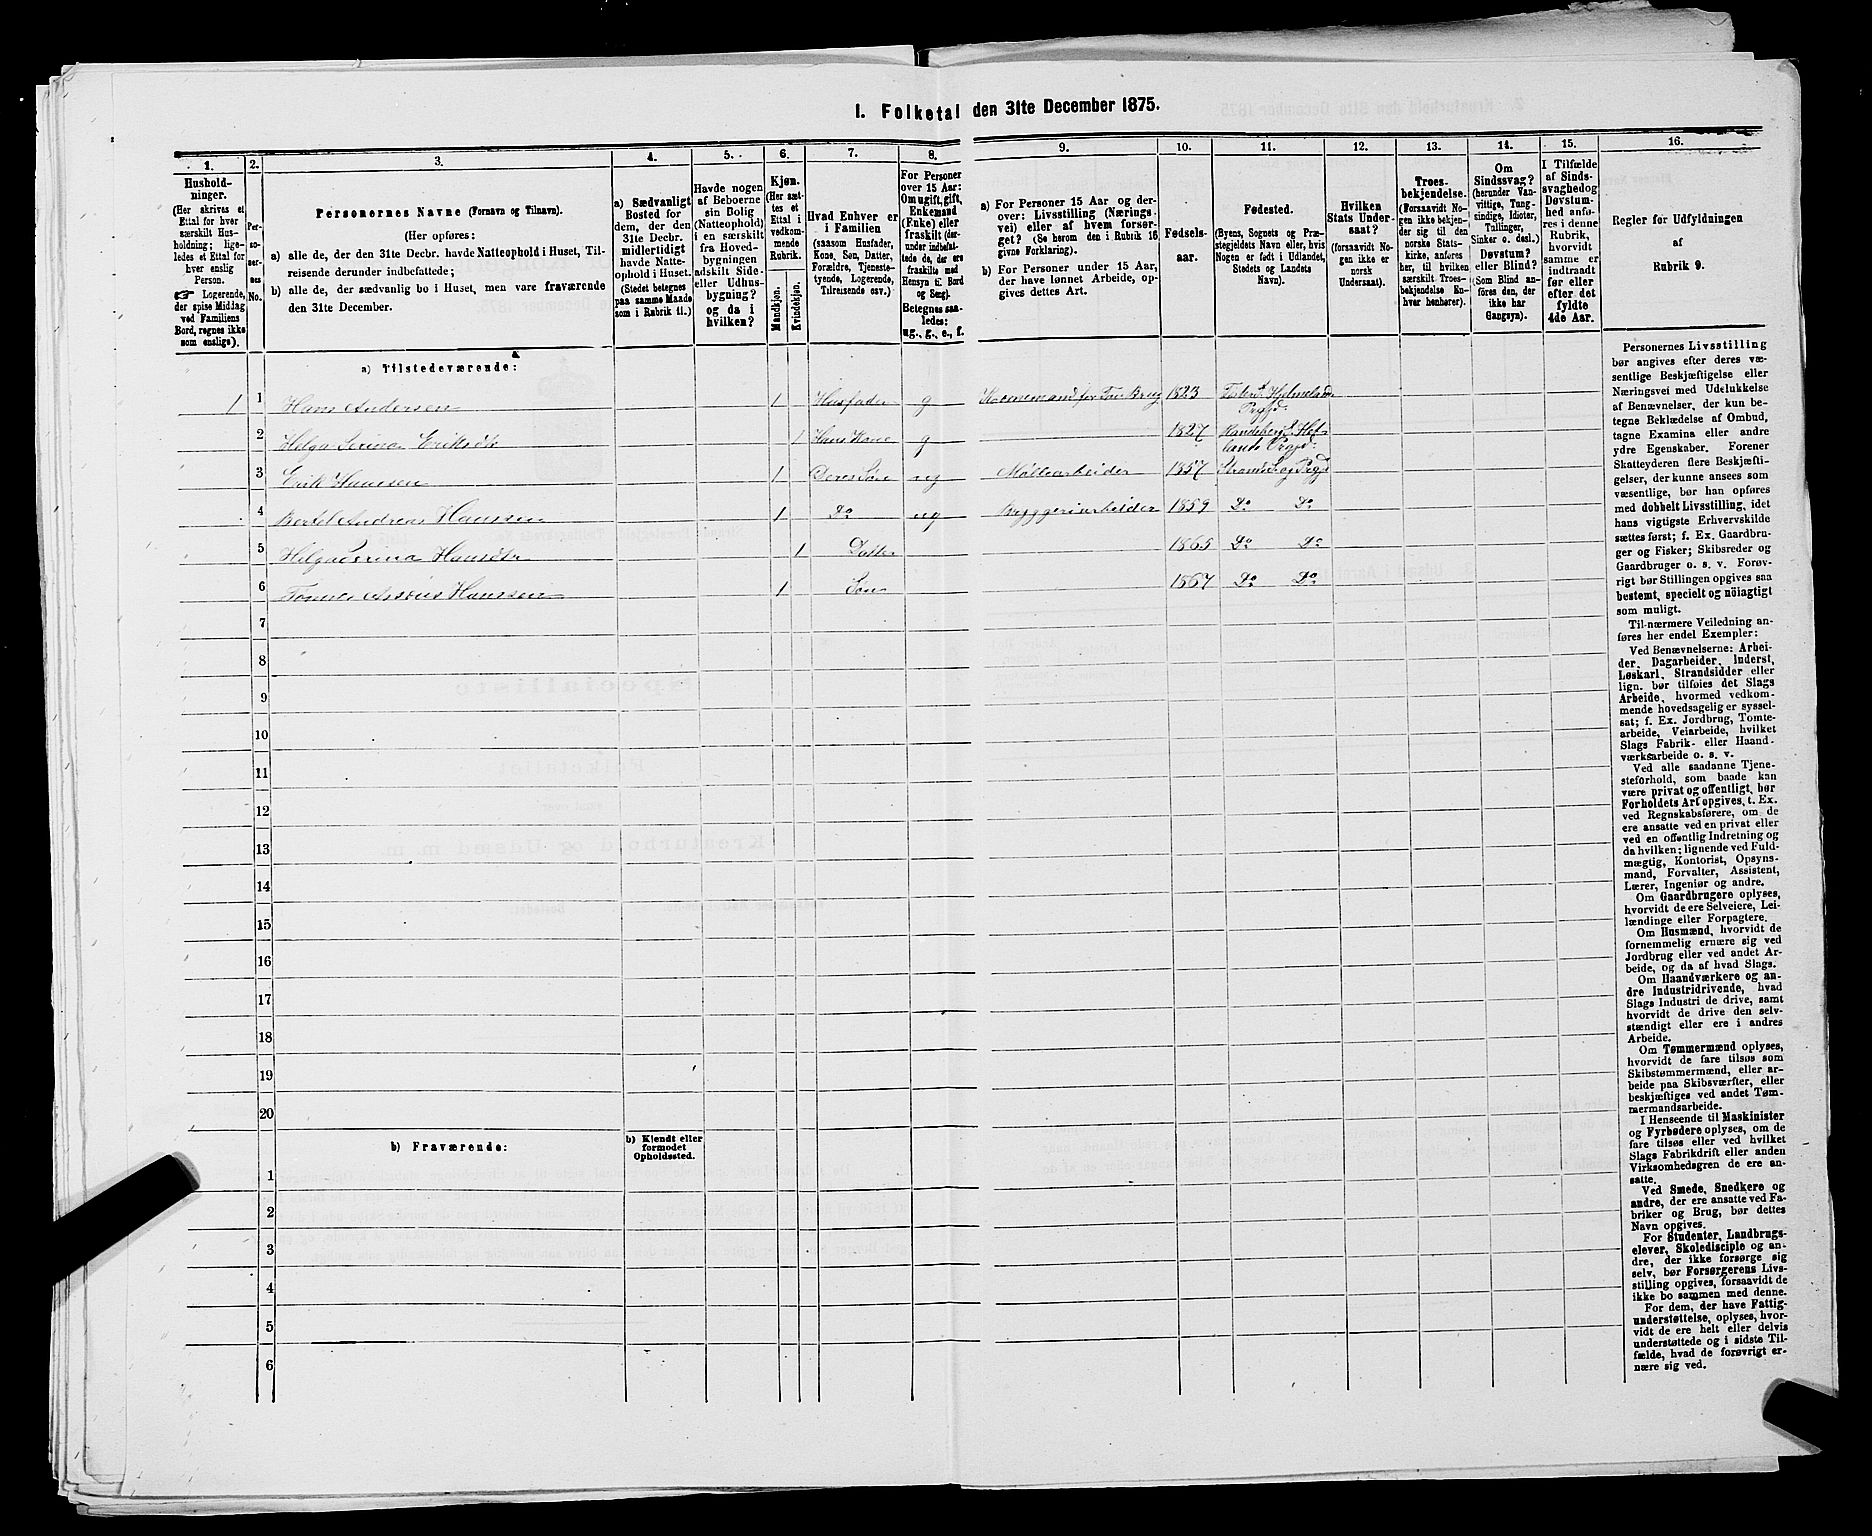 I. Folketal den 31te December 1875.
1.
Hushold-
ninger.
(Her skrives et
Ettal for hver
særskilt Hus-
holdning; lige-
ledes et Ettal for
hver enslig
Person.
☞ Logerende,
der spise Middag
ved Familiens
Bord, regnes ikke
som enslige).
2.
Per-
so-
ner-
nes
No.
3.
Personernes Navne (Fornavn og Tilnavn).
(Her opføres:
a) alle de, der den 31te Decbr. havde Natteophold i Huset, Til-
reisende derunder indbefattede;
b) alle de, der sædvanlig bo i Huset, men vare fraværende
den 31te December.
4.
a) Sædvanligt
Bosted for
dem, der den
31te Decbr.
midlertidigt
havde Natte-
ophold i Huset.
(Stedet betegnes
paa samme Maade
som i Rubrik 11.)
5.
Havde nogen
af Beboerne
sin Bolig
(Natteophold)
i en særskilt
fra Hoved-
bygningen
adskilt Side-
eller Udhus-
bygning?
og da i
hvilken?
6.
Kjøn.
(Her sæt-
tes et
Ettal i
vedkom-
mende
Rubrik.
Mandkjøn.
Kvindekjøn.
7.
Hvad Enhver er
i Familien
(saasom Husfader,
Kone, Søn, Datter,
Forældre, Tjeneste-
tyende, Logerende,
Tilreisende osv.).
8.
For Personer
over 15 Aar:
Om ugift, gift,
Enkemand
(Enke) eller
fraskilt (der-
under indbefat-
tede de, der
ere fraskilte med
Hensyn til Bord
og Seng).
Betegnes saa-
ledes:
ug., g., e., f.
9.
a) For Personer 15 Aar og der-
over: Livsstilling (Nærings-
vei) eller af hvem forsør-
get? (Se herom den i Rubrik 16
givne Forklaring).
b) For Personer under 15 Aar,
der have lønnet Arbeide, op-
gives dettes Art.
10.
Fødsels-
aar.
11.
Fødested.
(Byens, Sognets og Præ-
stegjeldets Navn eller, hvis
Nogen er født i Udlandet,
Stedets og Landets
Navn).
12.
Hvilken
Stats Under-
saat?
(forsaavidt No-
gen ikke er
norsk
Undersaat).
13.
Troes-
bekjendelse.
(Forsaavidt No-
gen ikke bekjen-
der sig til den
norske Stats-
kirke, anføres
her, til hvilken
særskilt Troes-
bekjendelse En-
hver henhører).
14.
Om
Sindssvag?
(herunder Van-
vittige, Tung-
sindige, Idioter,
Tullinger,
Sinker o. desl.)
Døvstum?
eller Blind?
(Som Blind an-
føres den, der
ikke har
Gangsyn).
15.
I Tilfælde
af Sinds-
svaghed og
Døvstum-
hed anfø-
res i denne
Rubrik,
hvorvidt
samme er
indtraadt
før eller
efter det
fyldte
4de Aar.
16.
Regler for Udfyldningen
af
Rubrik 9.
a) Tilstedeværende:
1 1 Hans Andersen 1 Husfader g for Brug 1823 Hjelmeland
Prgjd.
2 Helga Serina Eriksdtr 1 Hans Kone g 1827
lands Prgjd.
3 Erik Hansen 1 Deres Søn ug Møllearbeider 1857
4 Bertel Andreas Hanssen 1 Do ug Byggeriarbeider 1859 Do Do
5 Helga Serina Hansdtr 1 Datter 1865 Do Do
6 Hanssen 1 Søn 1867 Do Do
7
8
9
10
11
12
13
14
15
16
17
18
19
20
b) Fraværende:
b) Kjendt eller
formodet
Opholdssted.
1
2
3
4
5
6
Personernes Livsstilling
bør angives efter deres væ-
sentlige Beskjæftigelse eller
Næringsvei med Udelukkelse
af Benævnelser, der kun be-
tegne Beklædelse af Ombud,
tagne Examina eller andre
ydre Egenskaber. Forener
Skatteyderen flere Beskjæfti-
gelser, der kunne ansees som
væsentlige, bør han opføres
med dobbelt Livsstilling, idet
hans vigtigste Erhvervskilde
sættes først; f. Ex. Gaardbru-
ger og Fisker; Skibsreder og
Gaardbruger o. s. v. Forøv-
rigt bør Stillingen opgives saa
bestemt, specielt og nöiagtigt
som muligt.
Til nærmere Veiledning an-
føres her endel Exempler:
Ved Benævnelserne: Arbei-
der, Dagarbeider, Inderst,
Løskarl, Strandsidder eller
lign. bør tilføies det Slags
Arbeide, hvormed vedkom-
mende hovedsagelig er syssel-
sat; f. Ex. Jordbrug, Tomte-
arbeide, Veiarbeide, hvilket
Slags Fabrik- eller Haand-
værksarbeide o. s. v.
Ved alle saadanne Tjene-
steforhold, som baade kan
være privat og offentligt, bør
Forholdets Art opgives, t. Ex.
ved Regnskabsførere, om de
ere ansatte ved en privat eller
ved en offentlig Indretning og
da hvilken; lignende ved Fuld-
mægtig, Kontorist, Opsyns-
mand, Forvalter, Assistent,
Lærer, Ingeniør og andre.
Om Gaardbrugere oplyses,
hvorvidt de ere Selveiere, Lei-
lændinge eller Forpagtere.
Om Husmænd, hvorvidt de
fornemmelig ernære sig ved
Jordbrug eller ved andet Ar-
beide, og da af hvad Slags.
Om Haandværkere og an-
dre Industridrivende, hvad
Slags Industri de drive, samt
hvorvidt de drive den selv-
stændigt eller ere i andres
Arbeide.
Om Tømmermænd oplyses,
hvorvidt de fare tilsøs som
Skibstømmermænd, eller ar-
beide paa Skibsværfter, eller
beskjæftiges ved andet Tøm-
mermandsarbeide.
I Henseende til Maskinister
og Fyrbødere oplyses, om de
fare tilsøs eller ved hvilket
Slags Fabrikdrift eller anden
Virksomhedsgren de ere an-
satte.
Ved Smede, Snedkere og
andre, der ere ansatte ved Fa-
briker og Brug, bør dettes
Navn opgives.
For Studenter, Landbrugs-
elever, Skoledisciple og an-
dre, der ikke forsørge sig
selv, bør Forsørgerens Livs-
stilling opgives, forsaavidt de
ikke bo sammen med denne.
For dem, der have Fattig-
understøttelse, oplyses, hvor-
vidt de ere helt eller delvis
understøttede og i sidste Til-
fælde, hvad de forøvrigt er-
nære sig ved.